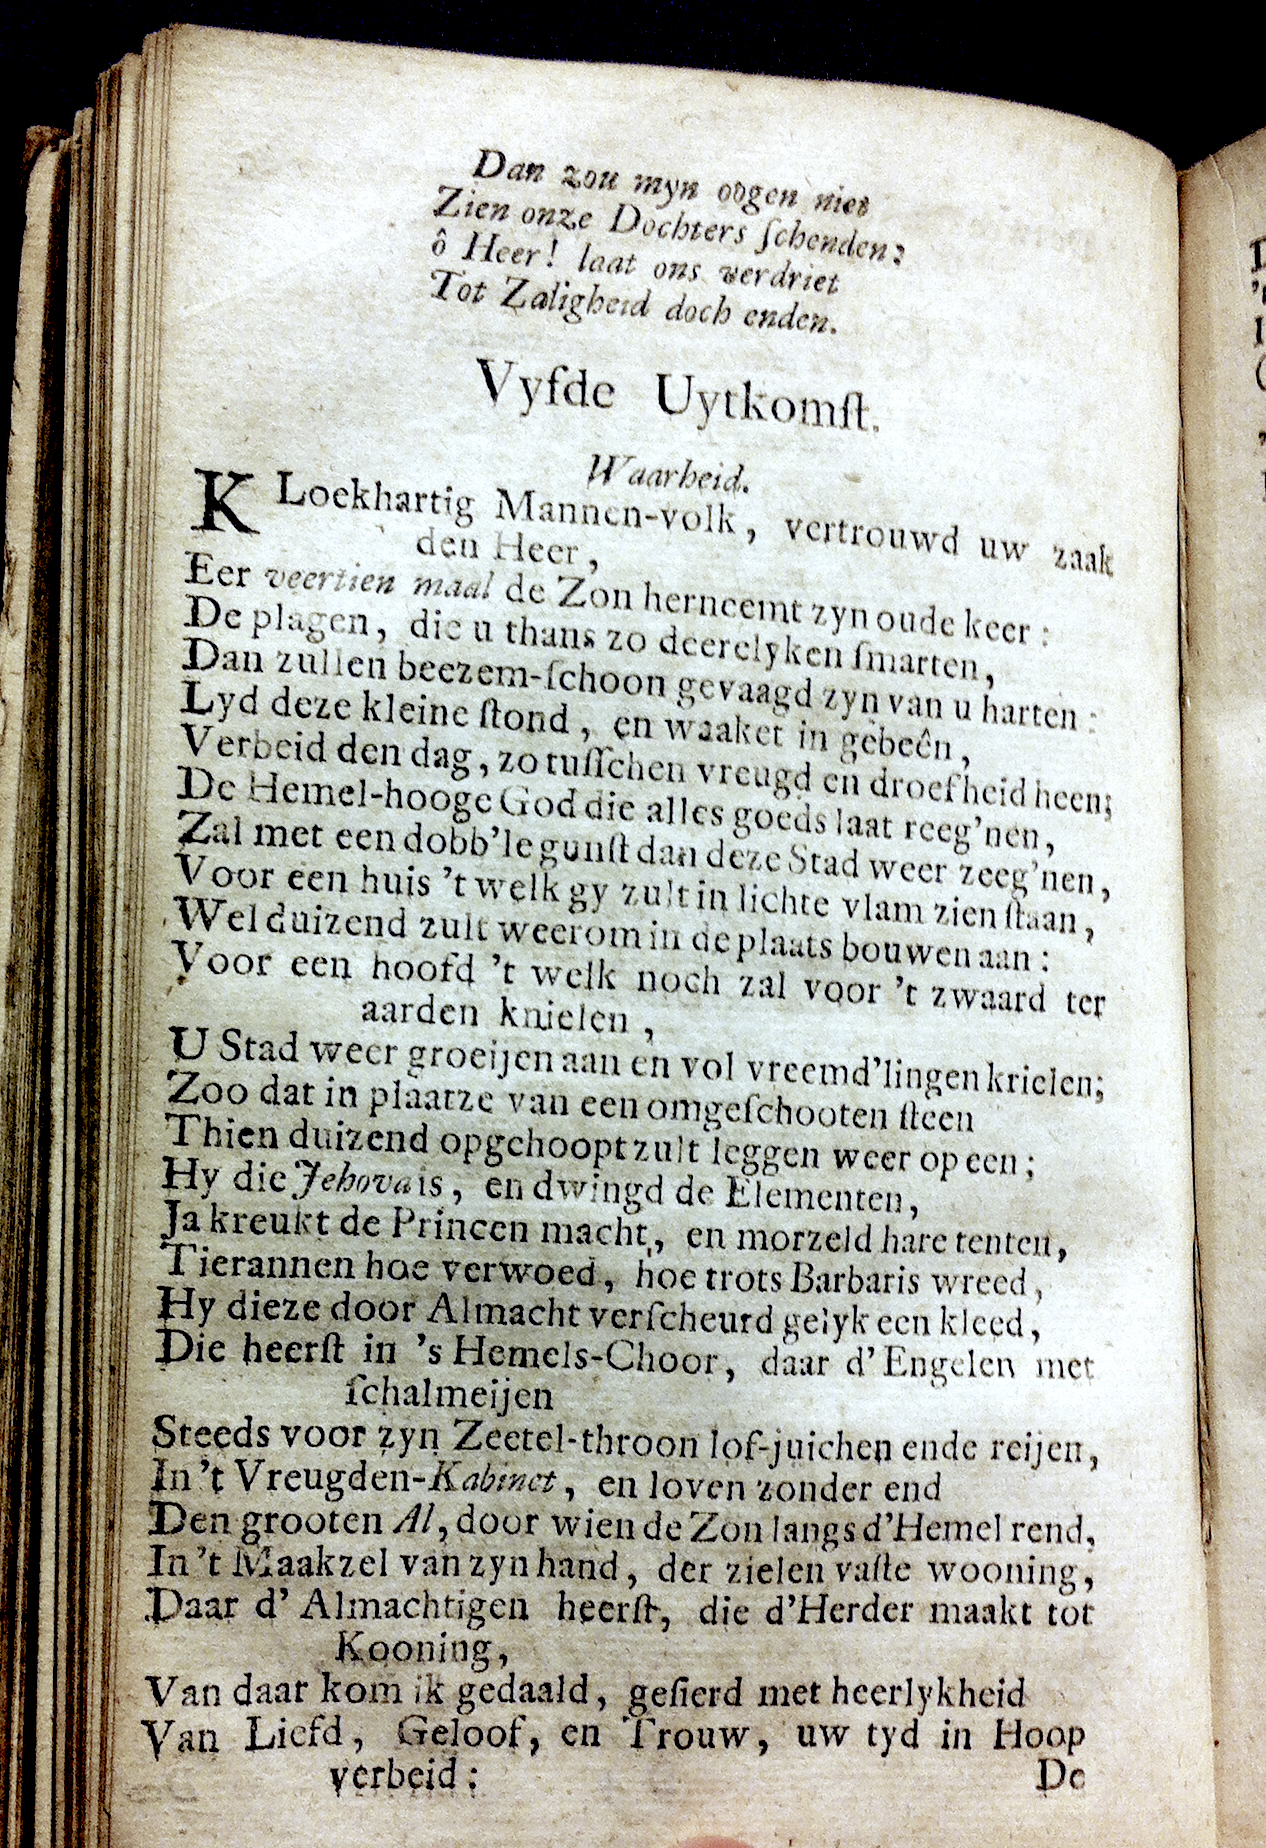 Dan zou myn oogen niet
Zien onze Dochters ſchenden;
ô Heer! laat ons verdriet
Tot Zaligheid doch enden.
Vyfde Uytkomſt.
Waarheid.
KLoekhartig Mannen-volk, vertrouwd uw zaak
den Heer,
Eer veertien maal de Zon herneemt zyn oude keer:
De plagen, die u thans zo deerelyken ſmarten,
Dan zullen beezem-ſchoon gevaagd zyn van u harten:
Lyd deze kleine ſtond, en waaket in gebeên,
Verbeid den dag, zo tuſſchen vreugd en droefheid heen;
De Hemel-hooge God die alles goeds laat reeg'nen,
Zal met een dobb'le gunſt dan deze Stad weer zeeg'nen,
Voor een huis 't welk gy zult in lichte vlam zien ſtaan,
Wel duizend zult weerom in de plaats bouwen aan:
Voor een hoofd 't welk noch zal voor 't zwaard ter
aarden knielen,
U Stad weer groeijen aan en vol vreemd'lingen krielen;
Zoo dat in plaatze van een omgeſchooten ſteen
Thien duizend opgehoopt zult leggen weer op een;
Hy die Jehova is, en dwingd de Elementen,
Ja kreukt de Princen macht, en morzeld hare tenten,
Tierannen hoe verwoed, hoe trots Barbaris wreed,
Hy dieze door Almacht verſcheurd gelyk een kleed,
Die heerſt in 's Hemels-Choor, daar d'Engelen met
ſchalmeijen
Steeds voor zyn Zeetel-throon lof-juichen ende reijen,
In 't Vreugden-Kabinet, en loven zonder end
Den grooten Al, door wien de Zon langs d'Hemel rend,
In 't Maakzel van zyn hand, der zielen vaſte wooning,
Daar d' Almachtigen heerſt, die d'Herder maakt tot
Kooning,
Van daar kom ik gedaald, geſierd met heerlykheid
Van Liefd, Geloof, en Trouw, uw tyd in Hoop
verbeid:
De